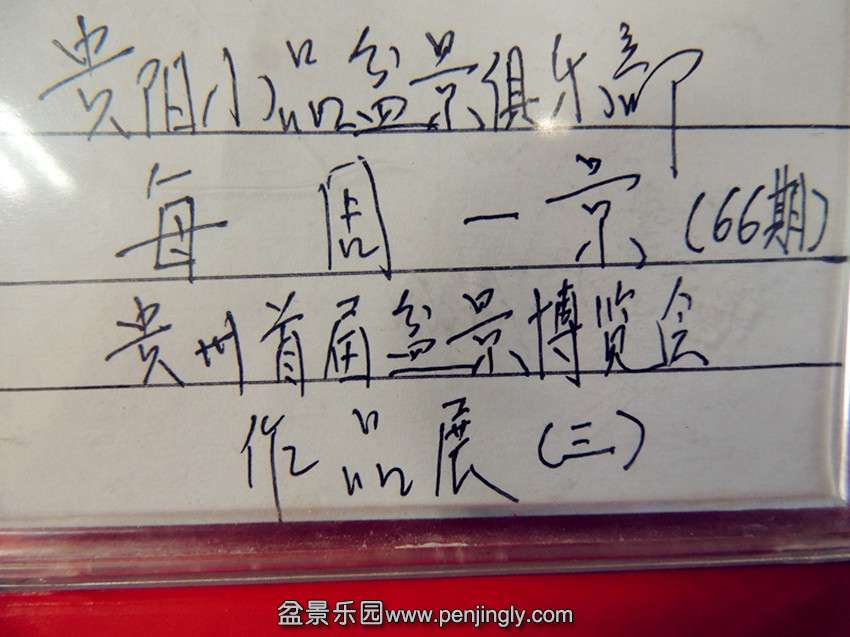 贵阳小品盆景俱乐部
每周一景(66期)
贵州首届盆景博览会
作品展(三)
盆景乐园www.penjingly.com